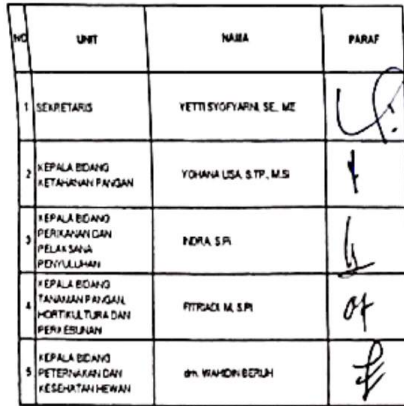 NO UNIT NAMA PARAF
1 SEKRETARIS YETTI SYOFYARNI, SE, ME
2 KEPALA BIDANG
KETAHANAN PANGAN YOHANA LISA, S.TP, M.Si
3 KEPALA BIDANG
PERIKANAN DAN
PELAKSANA
PENYULUHAN INDRA, S.Pi
4 KEPALA BIDANG
TANAMAN PANGAN,
HORTIKULTURA DAN
PERKEBUNAN FITRIADI. M, S.Pi
5 KEPALA BIDANG
PETERNAKAN DAN
KESEHATAN HEWAN drh. WAHIDIN BERUH